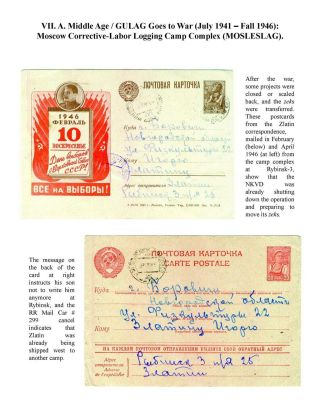 VII. A. Middle Age / GULAG Goes to War (July 1941 – Fall 1946):
Moscow Corrective-Labor Logging Camp Complex (MOSLESLAG).
1946
ФЕВРАЛЬ
10
ВОСКРЕСЕНЬЕ
День выборов
СССР!
ВСЕ НА ВЫБОРЫ!
ПОЧТОВАЯ КАРТОЧКА
Куда г. Боровичи
Новгородской области
ул. Физкультуры 22
Кому Игорю
Златину
Златин
Рыбинск 3 п/я 25
After the war,
some projects were
closed or scaled
back, and the zeks
were transferred.
These postcards
from the Zlatin
correspondence,
mailed in February
(below) and April
1946 (at left) from
the camp complex
at Rybinsk-3,
show that the
NKVD was
already shutting
down the operation
and preparing to
move its zeks.
The message on
the back of the
card at right
instructs his son
not to write him
anymore at
Rybinsk, and the
RR Mail Car #
299 cancel
indicates that
Zlatin was
already being
shipped west to
another camp.
ПОЧТОВАЯ КАРТОЧКА
CARTE POSTALE
г. Боровичи
Новгородской области
ул. Физкультуры 22
Златину Игорю
Рыбинск 3 п/я 25
Златин